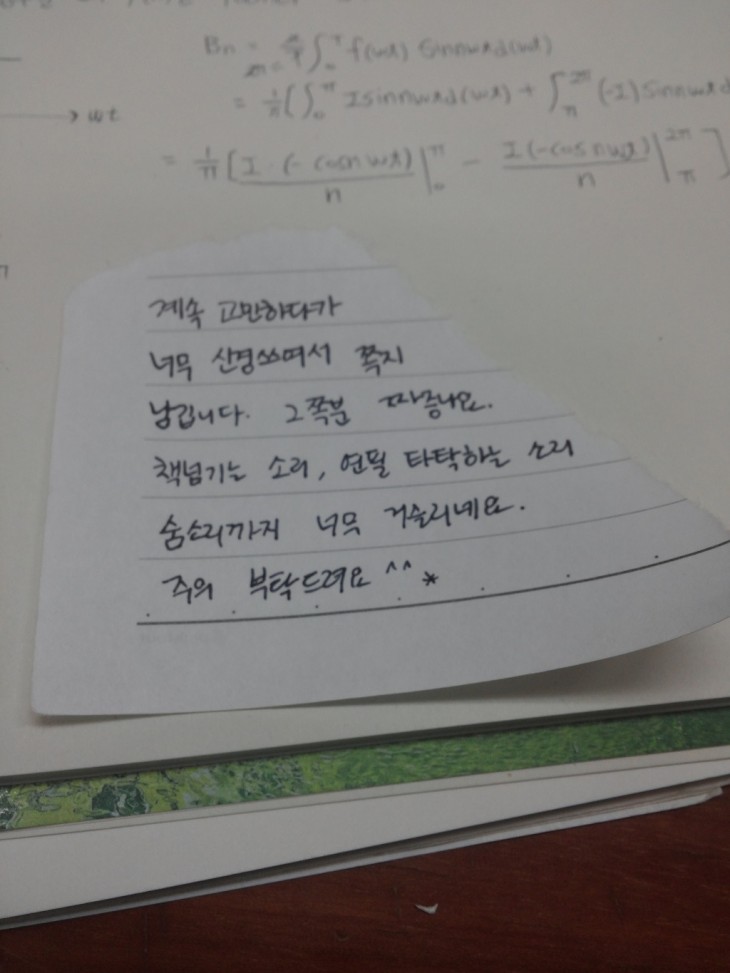 Bn = ∫ f(wt) sin nwt d(wt)
= 1/π [∫₀^π I sin nwt d(wt) + ∫_π^2π (-I) sin nwt d
→ wt
= 1/π [ I·(-cos nwt)/n |₀^π - I(-cos nwt)/n |_π^2π ]
계속 고민하다가
너무 신경쓰여서 쪽지
남깁니다. 그쪽분 짜증나요.
책넘기는 소리, 연필 타탁하는 소리
숨소리까지 너무 거슬리네요.
주의 부탁드려요 ^^*